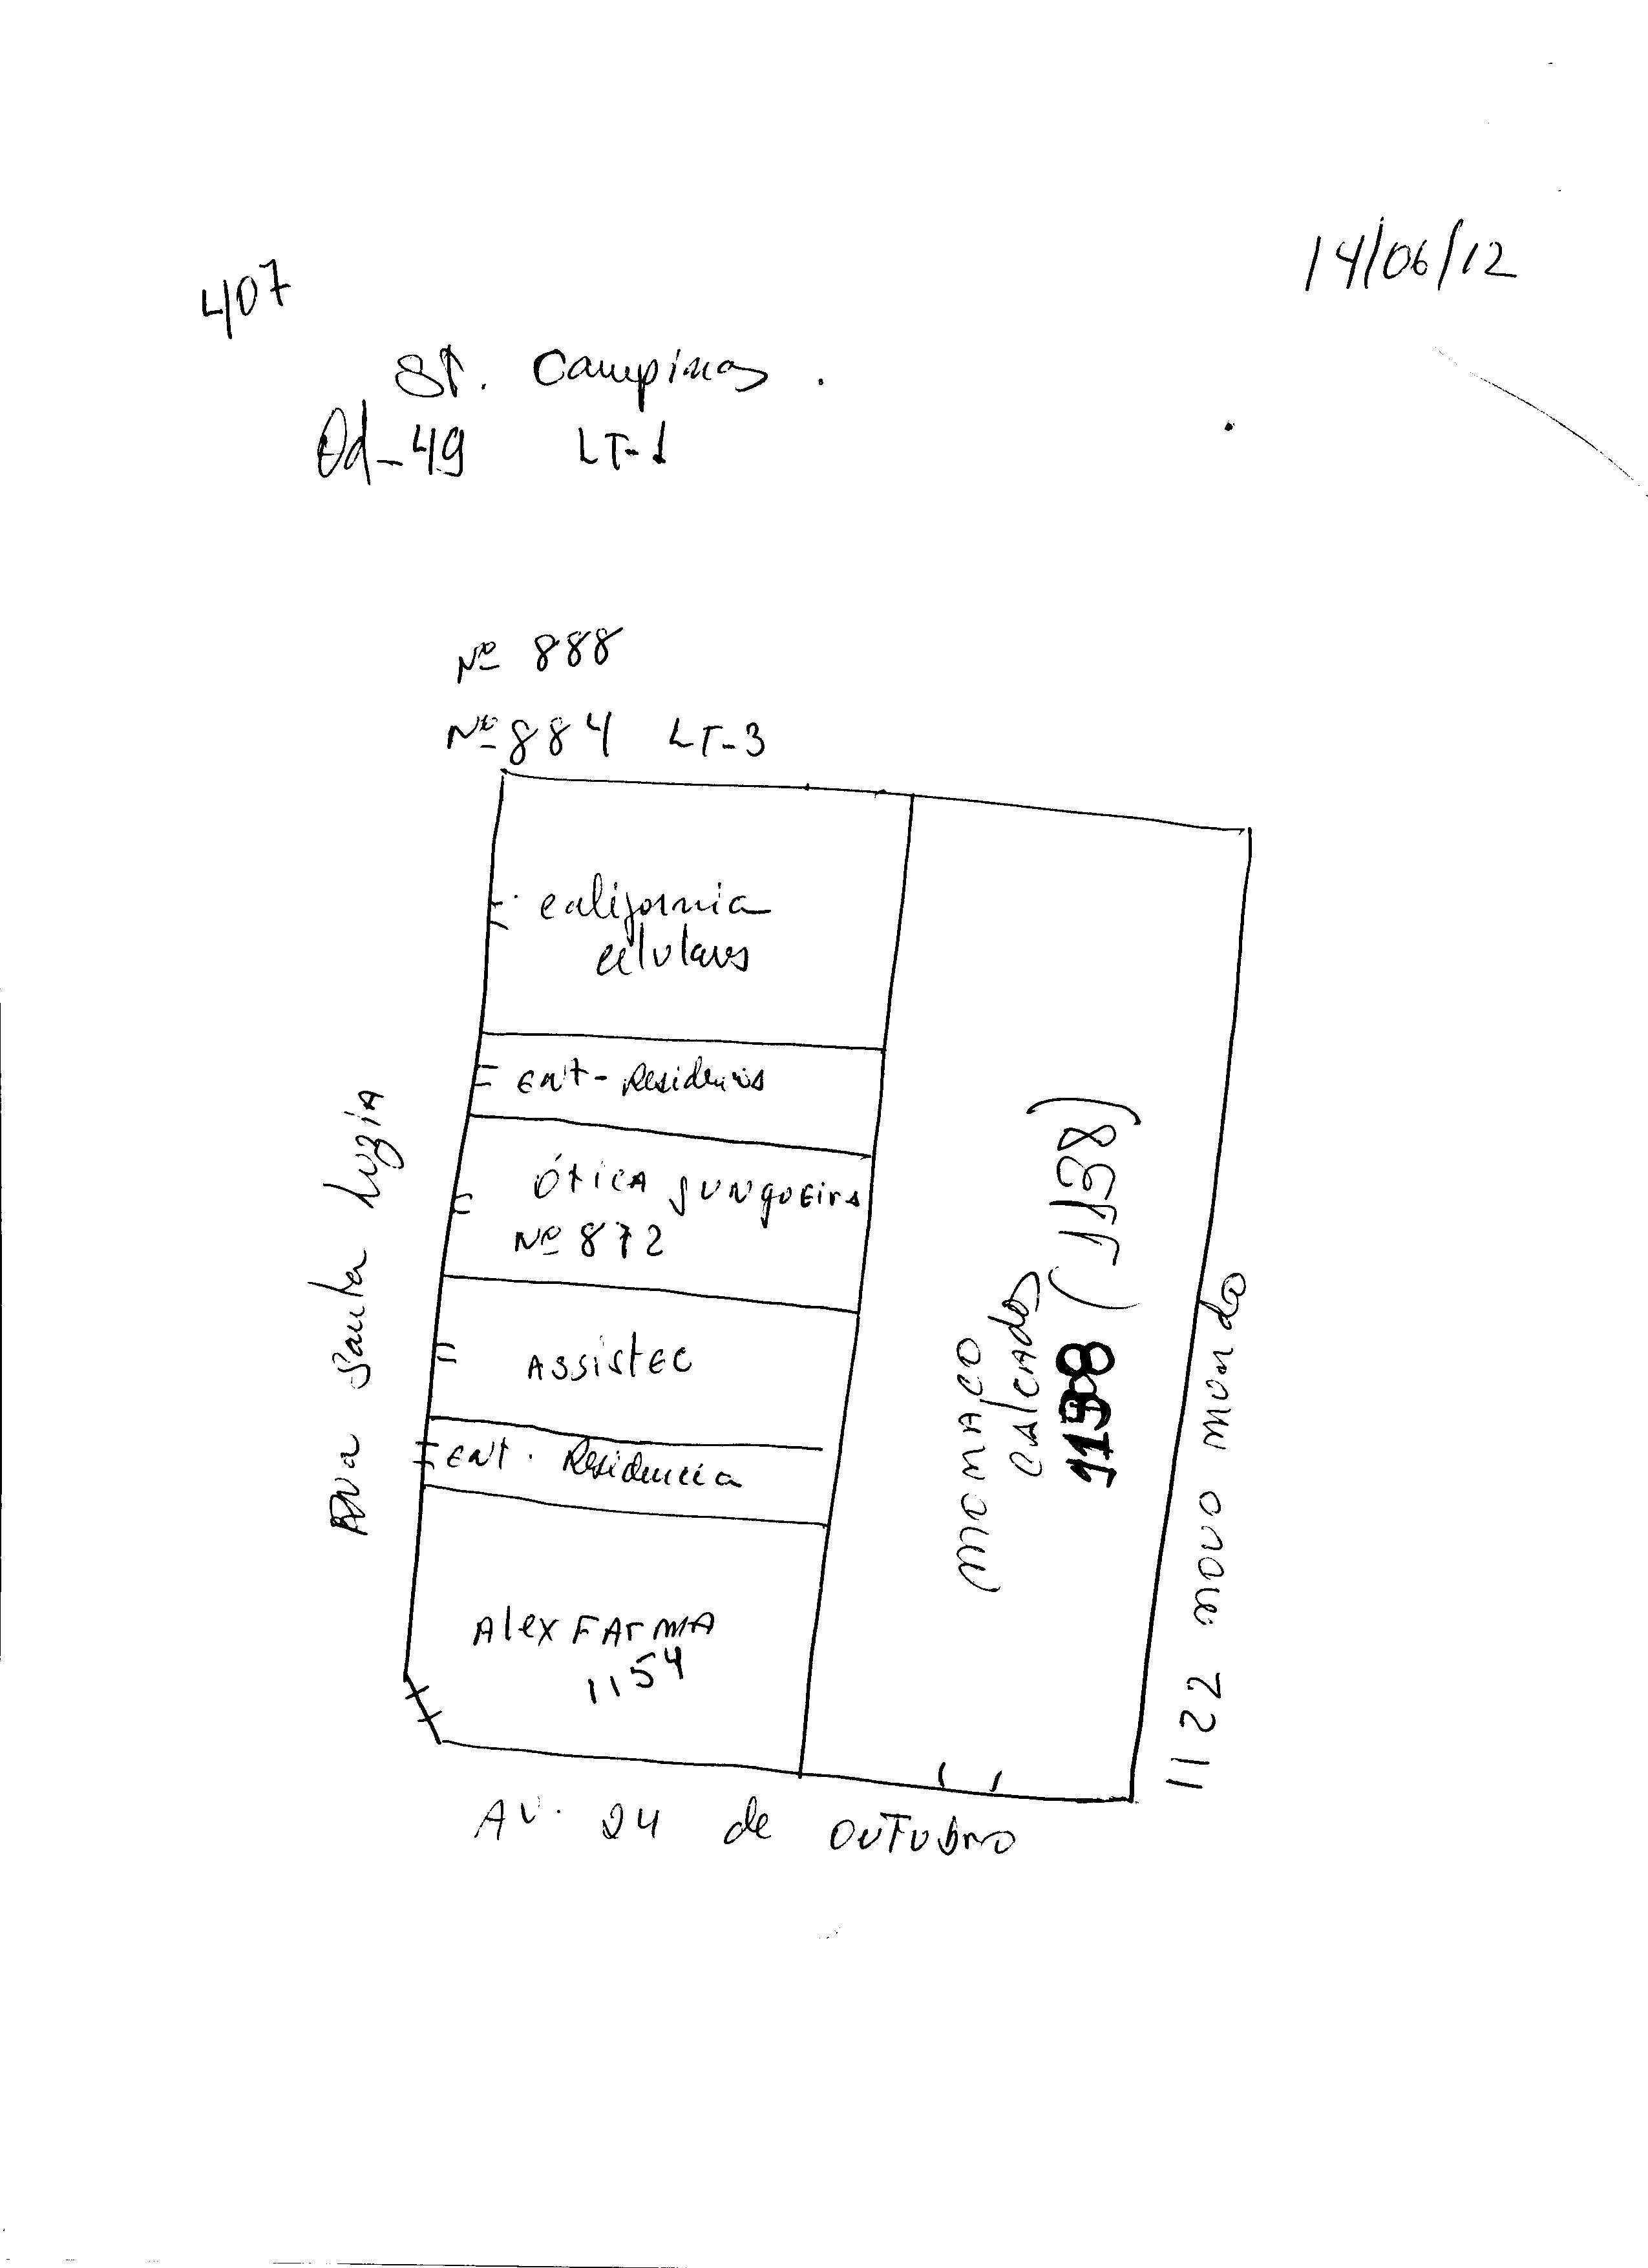 14/06/12
407
St. Campinas.
Qd-49 LT-1
Nº 888
Nº 884 LT-3
california
celulares
Ent-Residencia
Ótica Junqueira
Nº 872
Assistec
Ent. Residencia
Alex FArmA
1154
Rua Santa Luzia
monaco
calcados
1138 (1138)
1122 novo mundo
Av. 24 de OUTUBRO